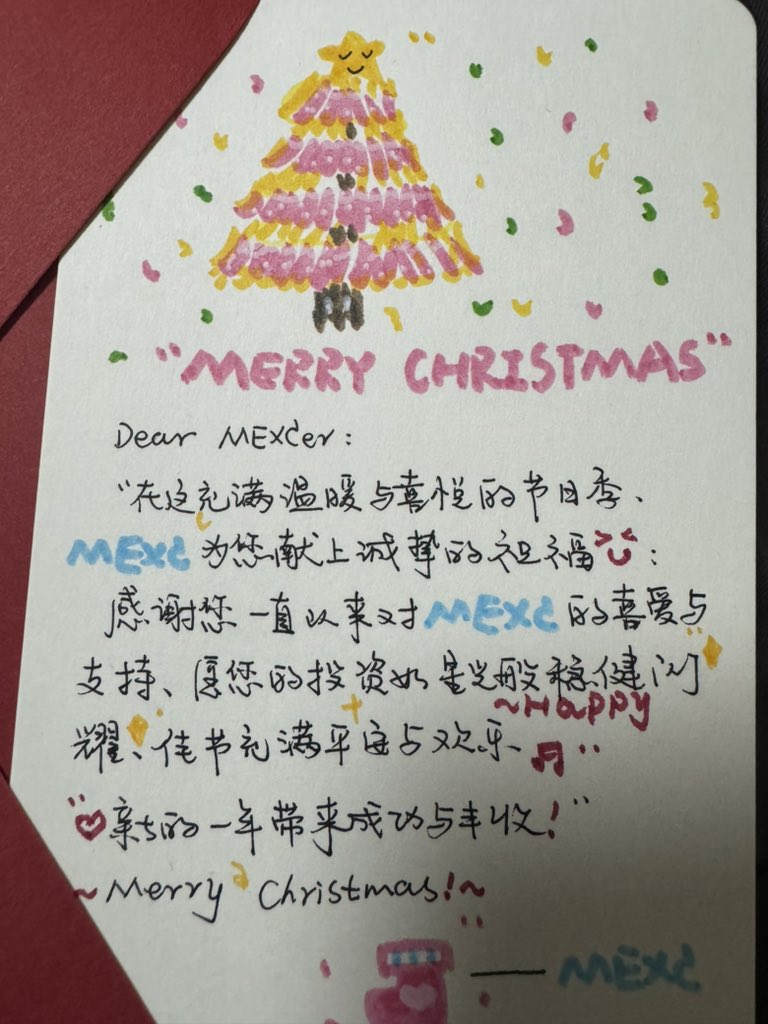 "MERRY CHRISTMAS"
Dear MEXCer:
"在这充满温暖与喜悦的节日季、
MEXC为您献上诚挚的祝福:
感谢您一直以来对MEXC的喜爱与
支持、愿您的投资如星光般稳健闪
~Happy
耀、佳节充满平安与欢乐、
新的一年带来成功与丰收!"
~Merry Christmas!~
——MEXC